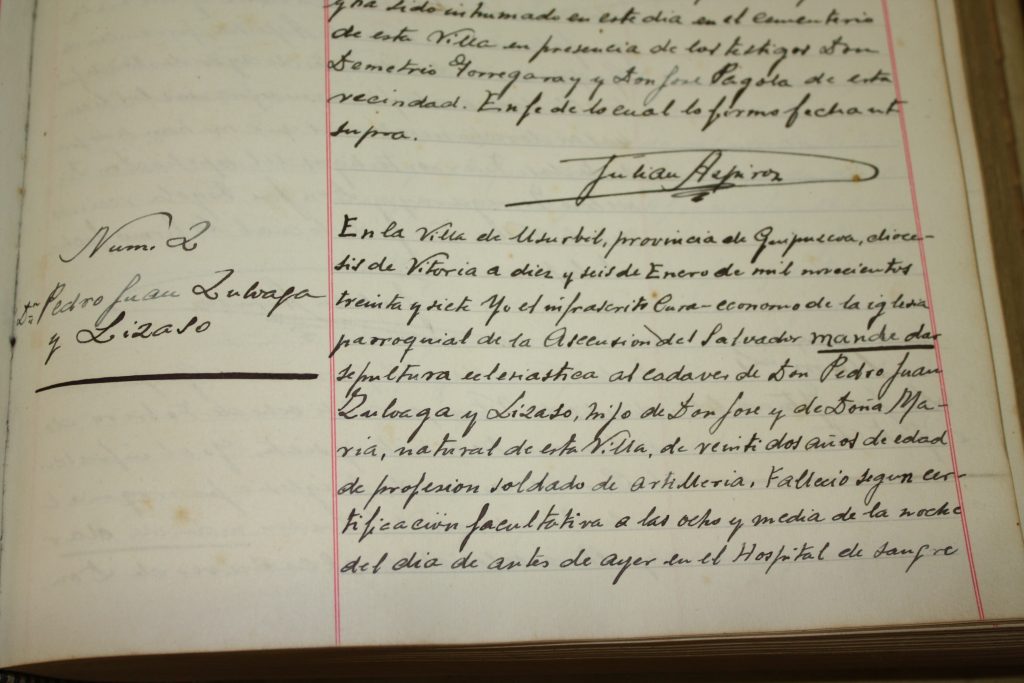 y ha sido inhumado en este dia en el cementerio
de esta Villa en presencia de los testigos Don
Demetrio Yorregaray y Don Jose Pagola de esta
vecindad. En fe de lo cual lo firmo fecha ut
supra.
Julian Aspiroz
Num. 2
Dn Pedro Juan Zuloaga
y Lizaso
En la Villa de Usurbil, provincia de Guipuzcoa, dioce-
sis de Vitoria a diez y seis de Enero de mil novecientos
treinta y siete Yo el infrascrito Cura-economo de la iglesia
parroquial de la Ascension del Salvador mande dar
sepultura eclesiastica al cadaver de Don Pedro Juan
Zuloaga y Lizaso, hijo de Don Jose y de Doña Ma-
ria, natural de esta Villa, de veintidos años de edad
de profesion soldado de artilleria. Fallecio segun cer-
tificacion facultativa a las ocho y media de la noche
del dia de antes de ayer en el Hospital de sangre